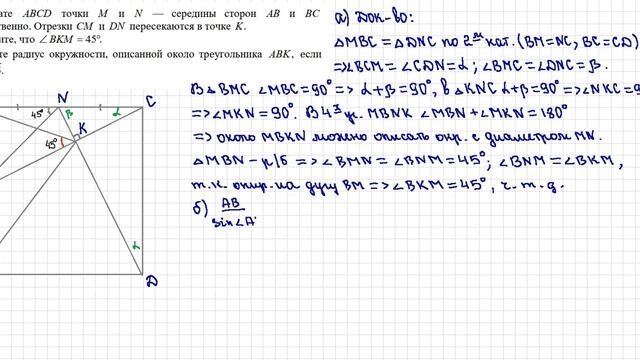 ате ABCD точки M и N — середины сторон AB и BC
ственно. Отрезки CM и DN пересекаются в точке K.
ите, что ∠BKM = 45°.
те радиус окружности, описанной около треугольника ABK, если
а) Док-во:
△MBC = △DNC по 2м кат. (BM=NC, BC=CD)
=> ∠BCM = ∠CDN = α; ∠BMC = ∠DNC = β.
В △BMC ∠MBC = 90° => α+β=90°, в △KNC α+β=90° => ∠NKC = 9
=> ∠MKN = 90°. В 4х уг. MBNK ∠MBN + ∠MKN = 180°
=> около MBKN можно описать окр. с диаметром MN.
△MBN - р/б => ∠BMN = ∠BNM = 45°; ∠BNM = ∠BKM,
т.к. опир. на дугу BM => ∠BKM = 45°, ч.т.д.
б) AB
sin∠A
N
C
45°
β
α
K
45°
α
D